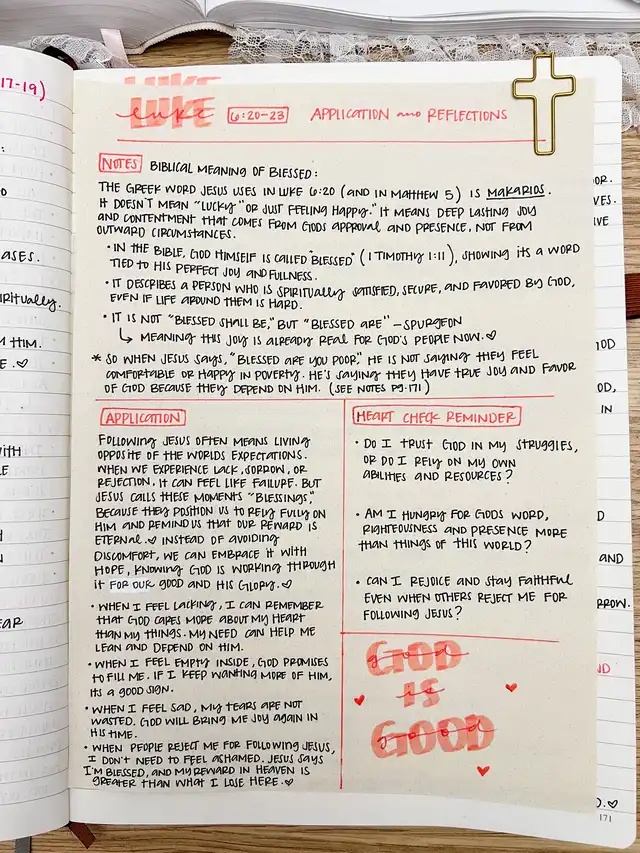 17-19)
ASES.
PIRITUALLY.
M HIM.
E. ♡
WITH
LE
N
EAR
LUKE
LUKE
luke 6:20-23 APPLICATION and REFLECTIONS
NOTES BIBLICAL MEANING OF BLESSED:
THE GREEK WORD JESUS USES IN LUKE 6:20 (AND IN MATTHEW 5) IS MAKARIOS.
IT DOESN'T MEAN "LUCKY" OR JUST FEELING HAPPY." IT MEANS DEEP LASTING JOY
AND CONTENTMENT THAT COMES FROM GODS APPROVAL AND PRESENCE, NOT FROM
OUTWARD CIRCUMSTANCES.
• IN THE BIBLE, GOD HIMSELF IS CALLED "BLESSED" (1 TIMOTHY 1:11), SHOWING ITS A WORD
TIED TO HIS PERFECT JOY AND FULLNESS.
• IT DESCRIBES A PERSON WHO IS SPIRITUALLY SATISFIED, SECURE, AND FAVORED BY GOD,
EVEN IF LIFE AROUND THEM IS HARD.
• IT IS NOT "BLESSED SHALL BE," BUT "BLESSED ARE" - SPURGEON
↳ MEANING THIS JOY IS ALREADY REAL FOR GOD'S PEOPLE NOW. ♡
* SO WHEN JESUS SAYS, "BLESSED ARE YOU POOR," HE IS NOT SAYING THEY FEEL
COMFORTABLE OR HAPPY IN POVERTY. HE'S SAYING THEY HAVE TRUE JOY AND FAVOR
OF GOD BECAUSE THEY DEPEND ON HIM. (SEE NOTES PG. 171)
APPLICATION
FOLLOWING JESUS OFTEN MEANS LIVING
OPPOSITE OF THE WORLDS EXPECTATIONS.
WHEN WE EXPERIENCE LACK, SORROW, OR
REJECTION, IT CAN FEEL LIKE FAILURE. BUT
JESUS CALLS THESE MOMENTS "BLESSINGS,"
BECAUSE THEY POSITION US TO RELY FULLY ON
HIM AND REMIND US THAT OUR REWARD IS
ETERNAL. ♡ INSTEAD OF AVOIDING
DISCOMFORT, WE CAN EMBRACE IT WITH
HOPE, KNOWING GOD IS WORKING THROUGH
IT FOR OUR GOOD AND HIS GLORY. ♡
• WHEN I FEEL LACKING, I CAN REMEMBER
THAT GOD CARES MORE ABOUT MY HEART
THAN MY THINGS. MY NEED CAN HELP ME
LEAN AND DEPEND ON HIM.
• WHEN I FEEL EMPTY INSIDE, GOD PROMISES
TO FILL ME. IF I KEEP WANTING MORE OF HIM,
ITS A GOOD SIGN.
• WHEN I FEEL SAD, MY TEARS ARE NOT
WASTED. GOD WILL BRING ME JOY AGAIN IN
HIS TIME.
• WHEN PEOPLE REJECT ME FOR FOLLOWING JESUS,
I DON'T NEED TO FEEL ASHAMED. JESUS SAYS
I'M BLESSED, AND MY REWARD IN HEAVEN IS
GREATER THAN WHAT I LOSE HERE. ♡
HEART CHECK REMINDER
• DO I TRUST GOD IN MY STRUGGLES,
OR DO I RELY ON MY OWN
ABILITIES AND RESOURCES?
• AM I HUNGRY FOR GODS WORD,
RIGHTEOUSNESS AND PRESENCE MORE
THAN THINGS OF THIS WORLD?
• CAN I REJOICE AND STAY FAITHFUL
EVEN WHEN OTHERS REJECT ME FOR
FOLLOWING JESUS?
GOD
IS
GOOD
OR.
VES.
IVE
OD
OD,
IN
D
AND
RROW.
ND
D. ♡
171